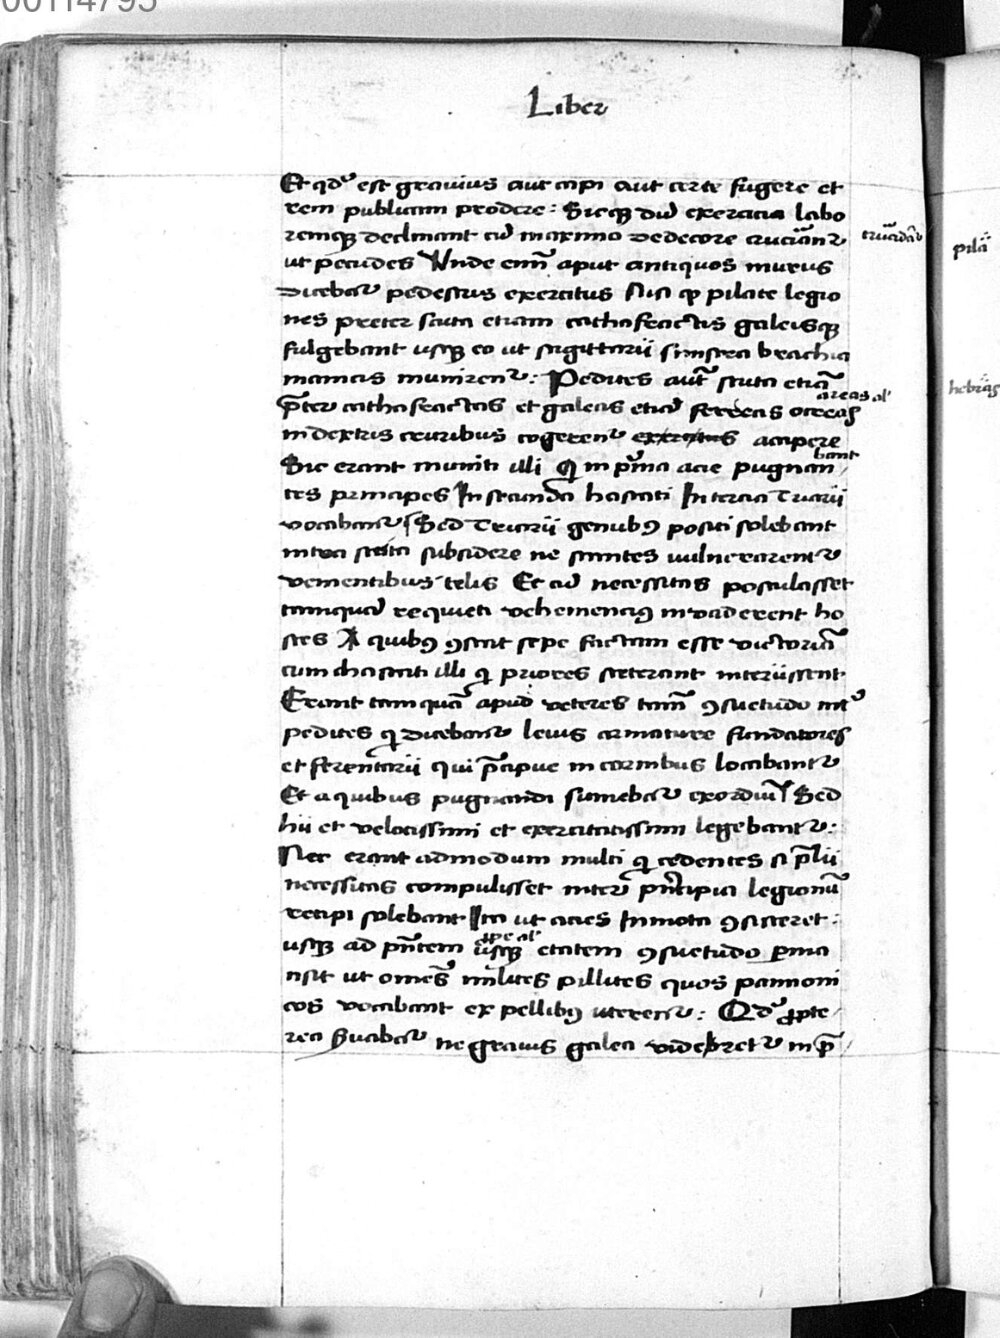 00114795
Liber
Et qd' est grauius aut capi aut certe fugere et
rem publicam prodere: Sicq; dū exercicia labo
remq; declinant cū maximo dedecore crucianr̄
trucidār̄
ut pecudes Vnde enī aput antiquos murus
dicebar̄ pedestris exercitus Nisi qp pilate legio
nes preter scuta etiam cathafractis galeisq;
fulgebant usq; eo ut sagittarii sinistra brachia
manicis munirenr̄: Pedites aut̄ scuta etiā
p̄ter cathafractas et galeas etiā ferreas ocreas
areas al'
in dextris cruribus cogerenr̄ exercitus accipere
Sic erant muniti illi q̄ in p̄ma acie pugnan
bant
tes principes In secunda hastati In tercia Triarii
vocabanr̄ Sed Triarii genubꝯ positi solebant
intra scuta subsidere ne stantes uulnerarent̄
venientibus telis Et cū necessitas postulasset
tamquā requieti vehemenciꝯ invaderent ho
stes A quibꝯ ꝯstat sepe factam esse victoriā
cum hastati illi q̄ priores steterant interiissent
Erant tamquā apud veteres tam̄ ꝯsuetudo int'
pedites q̄ dicebanr̄ leuis armature fundatores
et ferentarii qui p̄cipue in cornibus locabantr̄
Et a quibus pugnandi sumebar̄ exordiū Sed
hii et velocissimi et exercitatissimi legebantr̄:
Nec erant admodum multi q̄ cedentes si p̄lii
necessitas compulisset inter p̄ncipia legionū
recipi solebant Ita ut acies Inmota ꝯsisteret:
usq; ad pn̄tem usq; etatem ꝯsuetudo p̱ma
ꝓpe al'
nsit ut omēs milites pillites quos pannoni
cos vocabant ex pellibꝯ uterenr̄: Qd' ꝓpte
rea Suabar̄ ne grauis galea videbretr̄ in p̄
pilā
hebrās